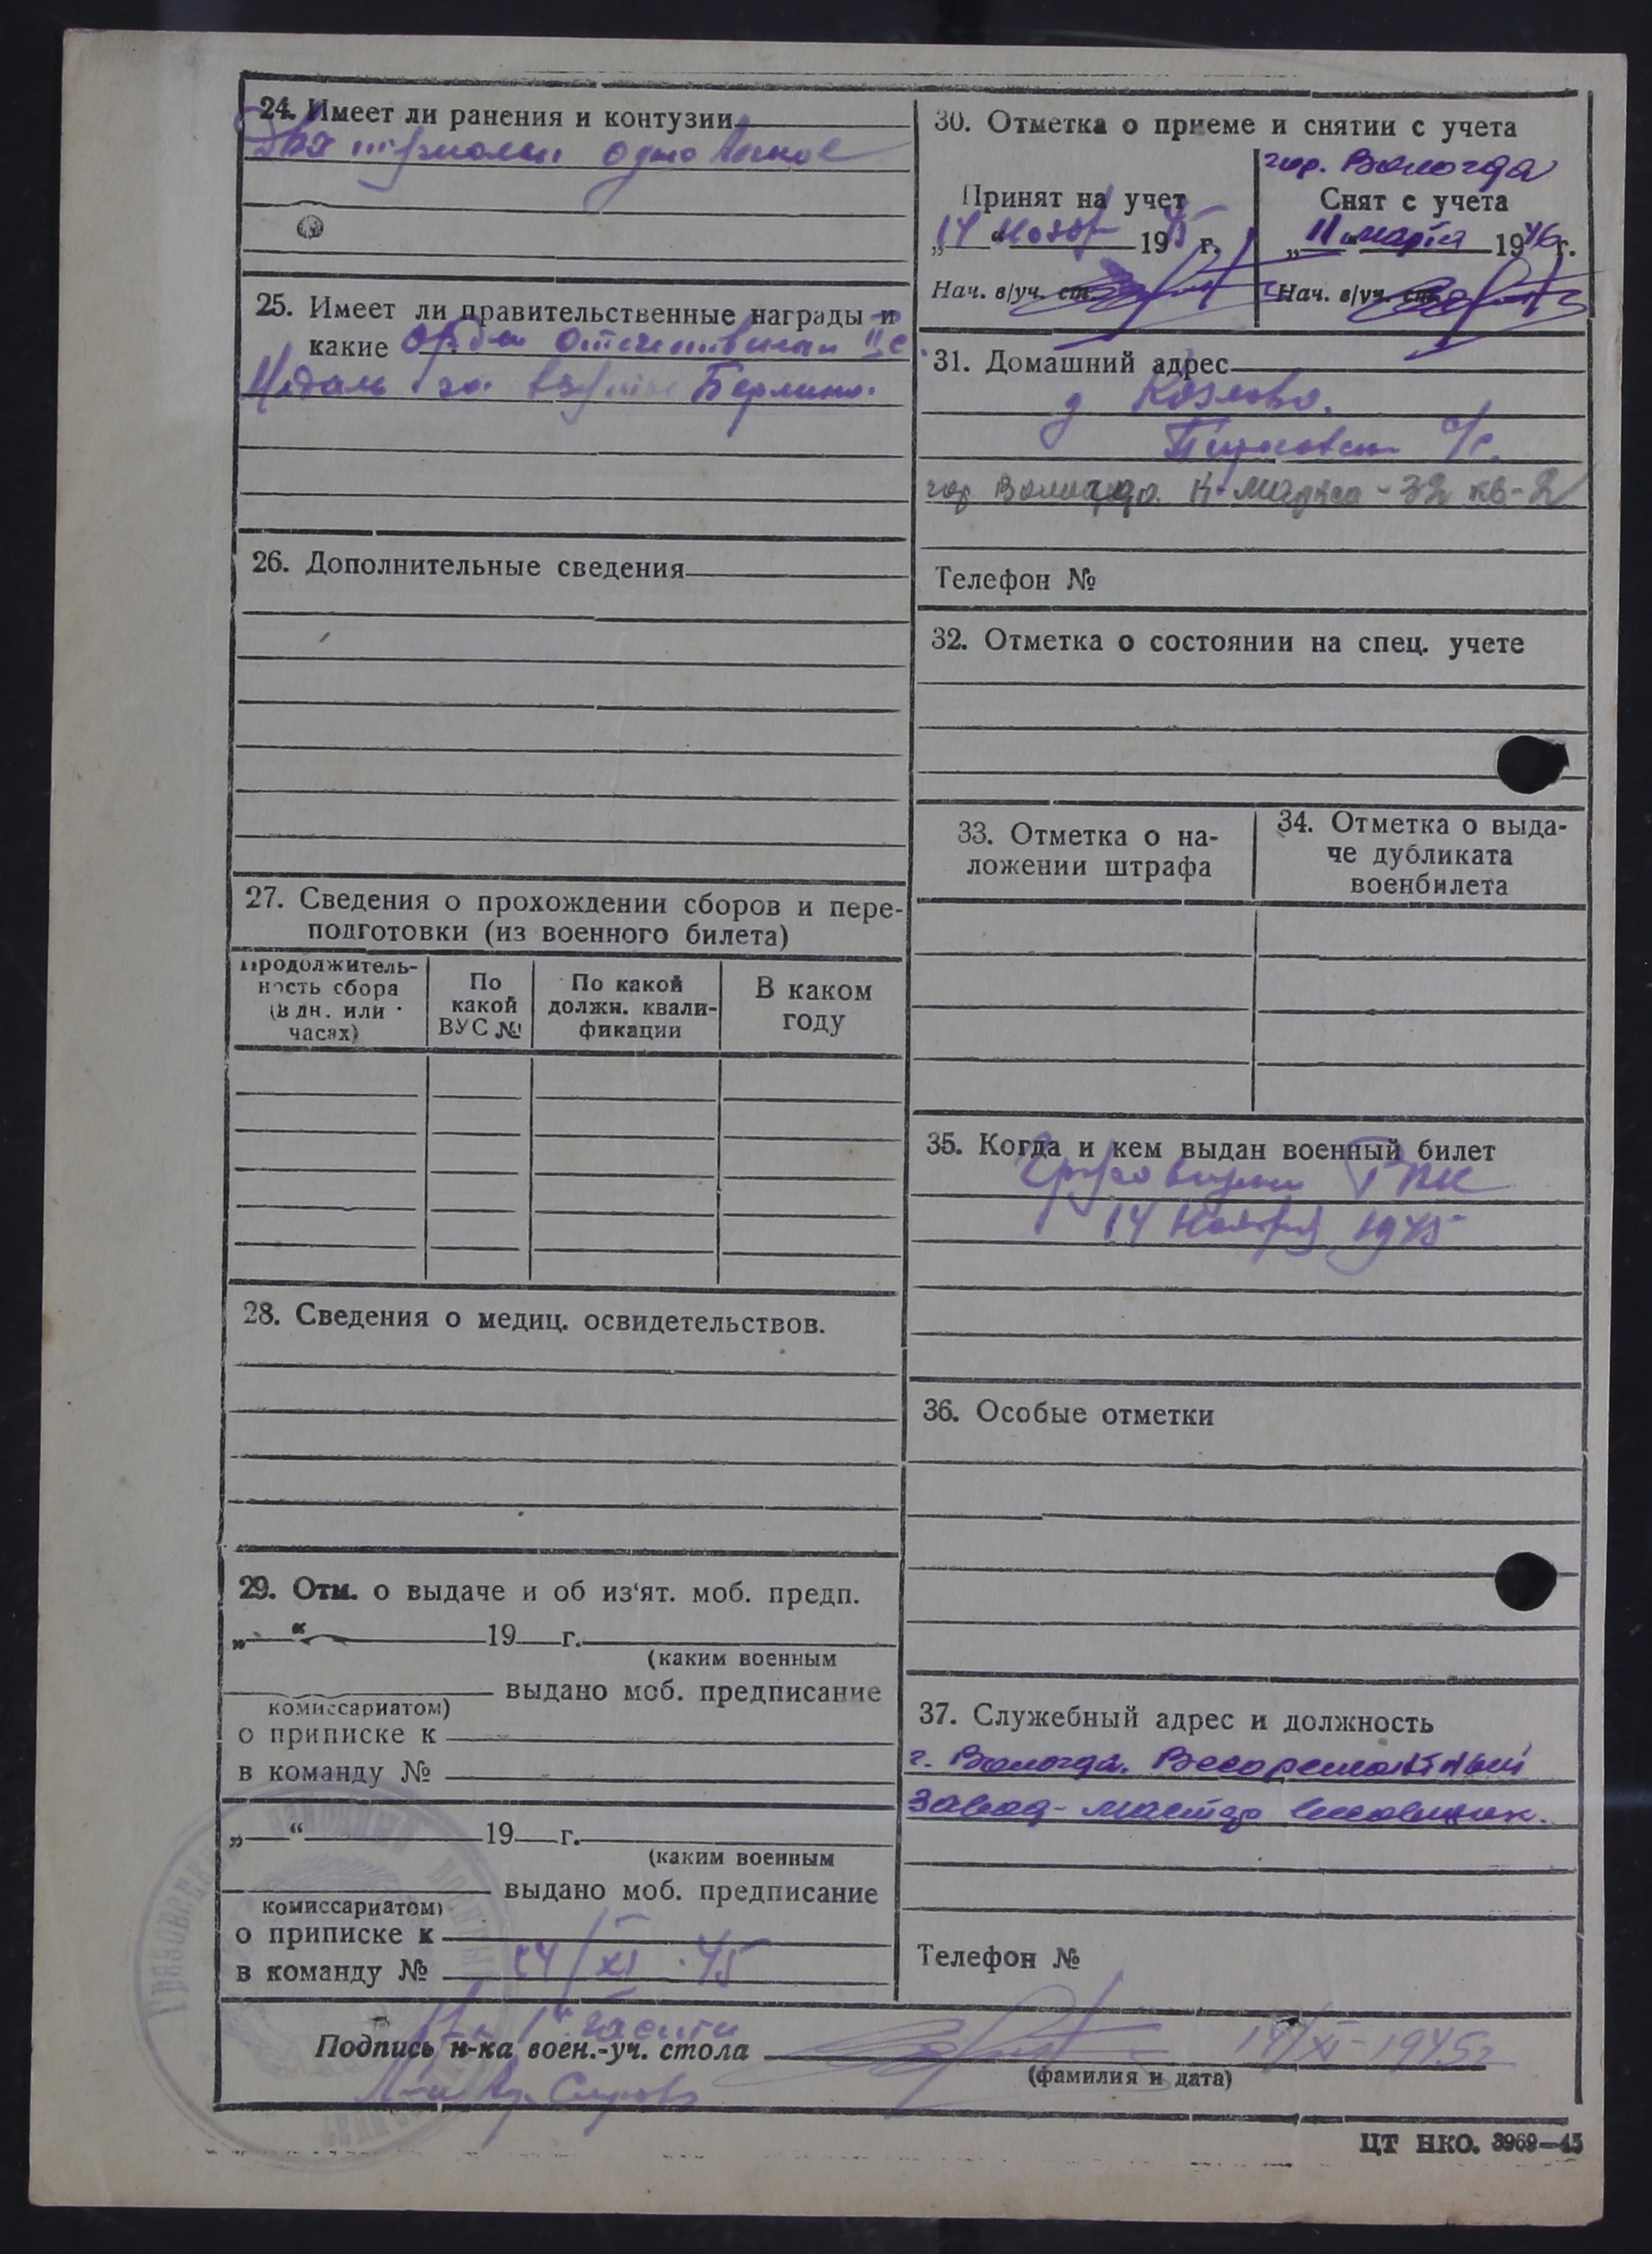 24. Имеет ли ранения и контузии
Два тяжолых одно легкое
25. Имеет ли правительственные награды и
какие Орден Отечественный II с
Медаль за взятие Берлина.
26. Дополнительные сведения
27. Сведения о прохождении сборов и пере-
подготовки (из военного билета)
Продолжитель-
ность сбора
(в дн. или
часах)
По
какой
ВУС №
По какой
должн. квали-
фикации
В каком
году
28. Сведения о медиц. освидетельствов.
29. Отм. о выдаче и об из'ят. моб. предп.
„ “ 19 г.
(каким военным
выдано моб. предписание
комиссариатом)
о приписке к
в команду №
„ “ 19 г.
(каким военным
выдано моб. предписание
комиссариатом)
о приписке к
в команду № 14/XI 45
30. Отметка о приеме и снятии с учета
Принят на учет
„14“ Нояб 1945 г.
Нач. в/уч. ст.
гор. Вологда
Снят с учета
„11“ марта 1946 г.
Нач. в/уч. ст.
31. Домашний адрес
д Козлово.
с/с.
гор Вологда К-Маркса-32 кв-2
Телефон №
32. Отметка о состоянии на спец. учете
33. Отметка о на-
ложении штрафа
34. Отметка о выда-
че дубликата
военбилета
35. Когда и кем выдан военный билет
РВК
14 Ноября 1945
36. Особые отметки
37. Служебный адрес и должность
г. Вологда. Весоремонтный
завод-мастер
Телефон №
1й части
Подпись н-ка воен.-уч. стола 14/XI-1945г
(фамилия и дата)
ЦТ НКО. 3969—45